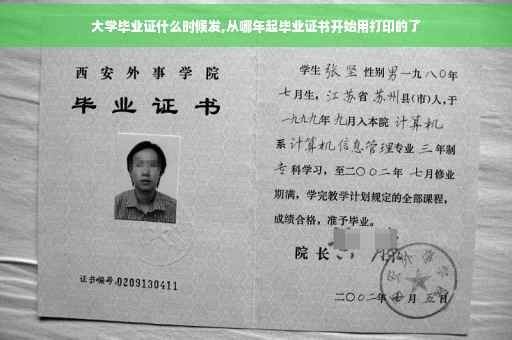 大学毕业证什么时候发,从哪年起毕业证书开始用打印的了
西安外事学院
毕业证书
证书编号:0209130411
学生张坚性别男一九八〇年
七月生,江苏省苏州县(市)人,于
一九九九年九月入本院计算机
系计算机信息管理专业三年制
专科学习,至二〇〇二年七月修业
期满,学完教学计划规定的全部课程,
成绩合格,准予毕业。
院长
二〇〇二年 月五日